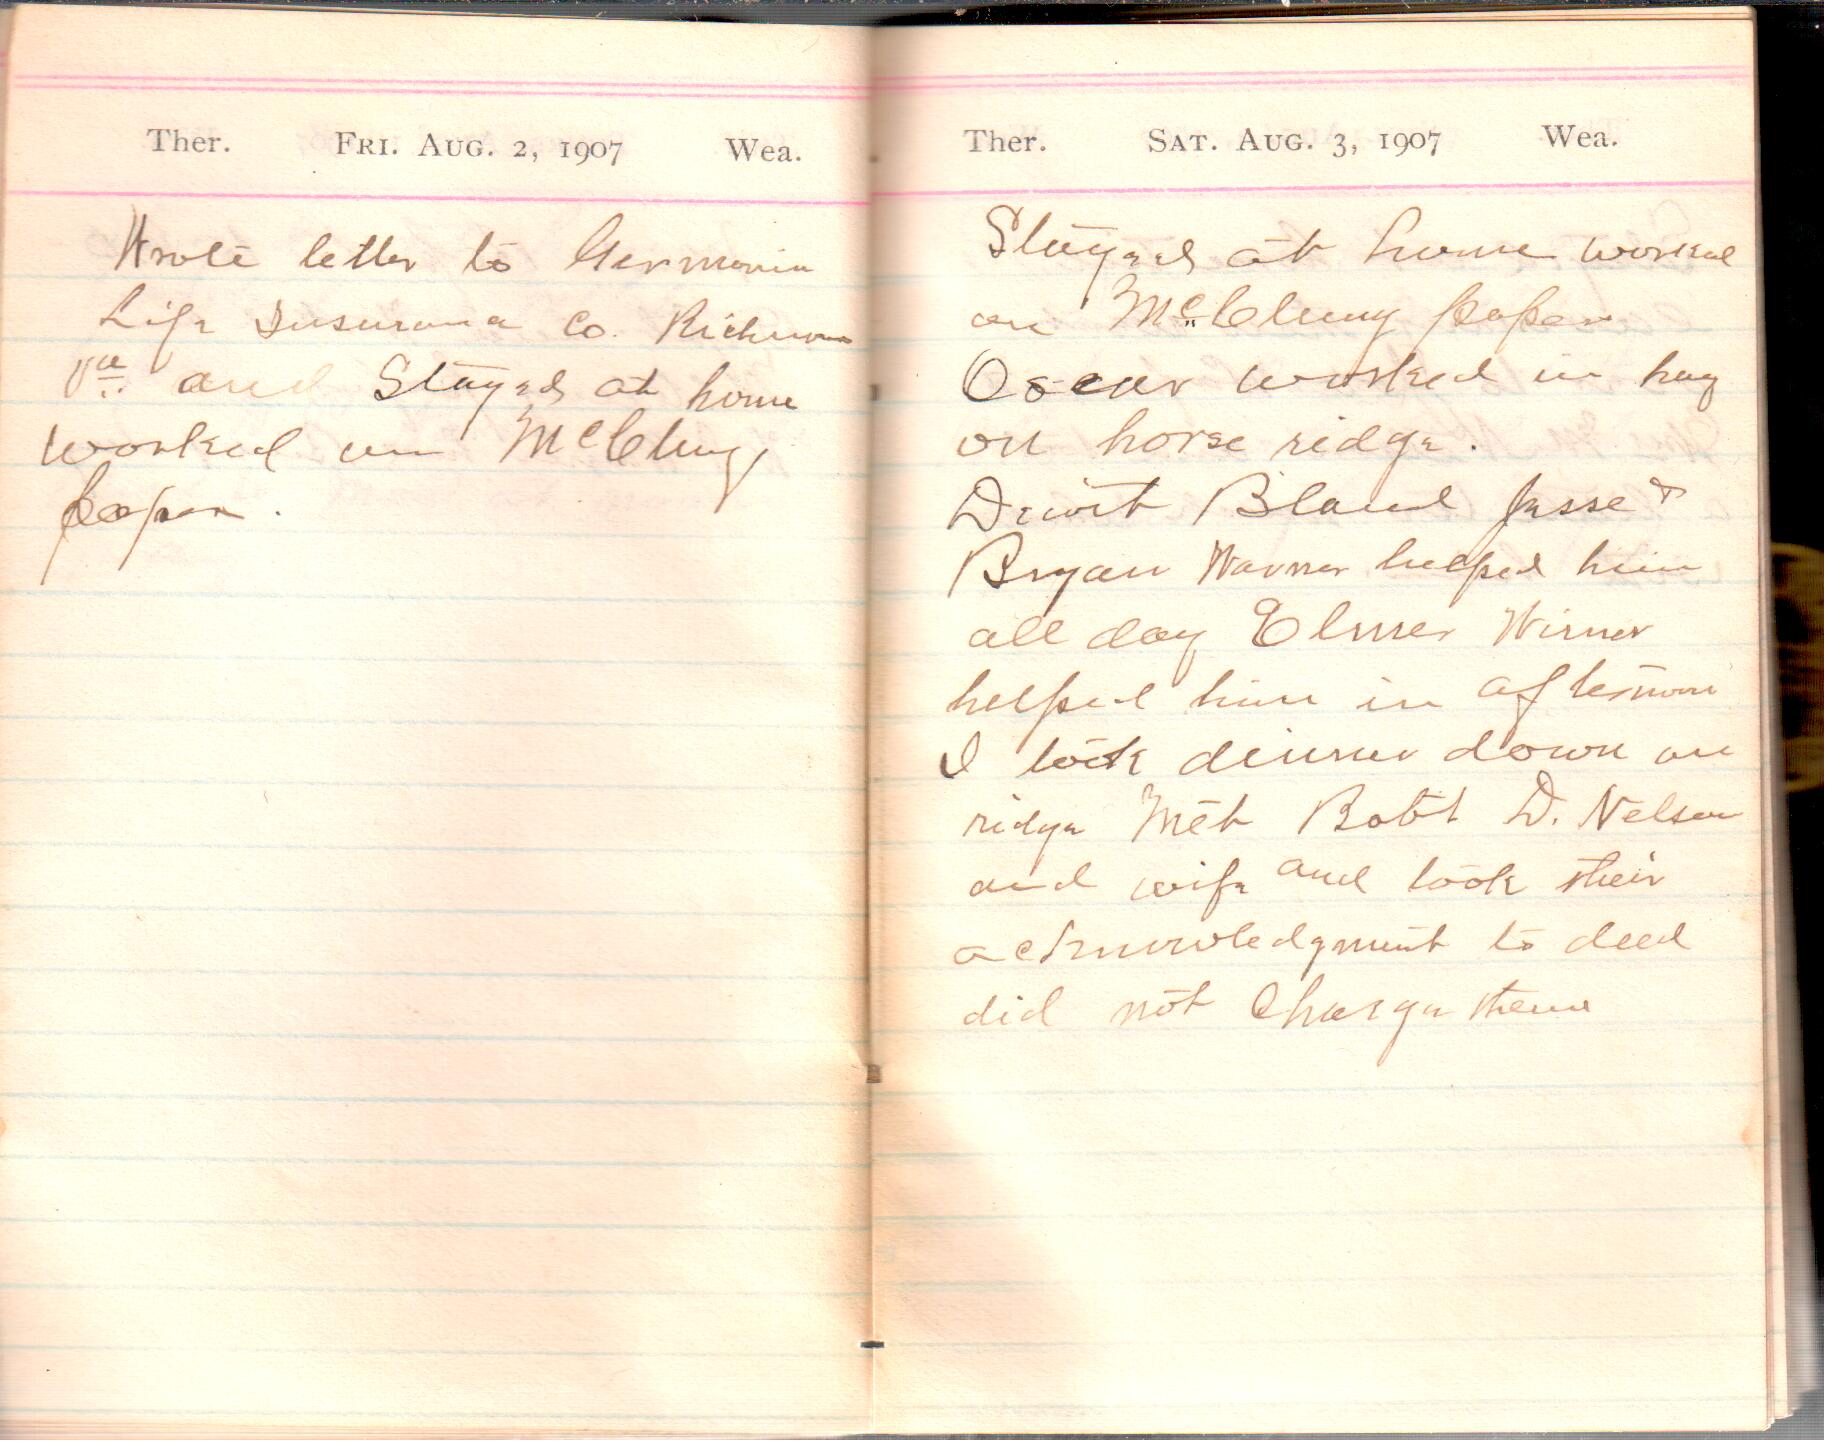 Ther. Fri. Aug. 2, 1907 Wea.
Wrote letter to Germania
Life Insurance Co. Richmond
Va. and Stayed at home
worked on McClung
paper.
Ther. Sat. Aug. 3, 1907 Wea.
Stayed at home worked
on McClung paper
Oscar worked in hay
on horse ridge.
Dewit Bland Jesse &
Bryan Warner helped him
all day Elmer Wirner
helped him in afternoon
I took dinner down on
ridge Met Robt D. Nelson
and wife and took their
acknowledgment to deed
did not Charge them